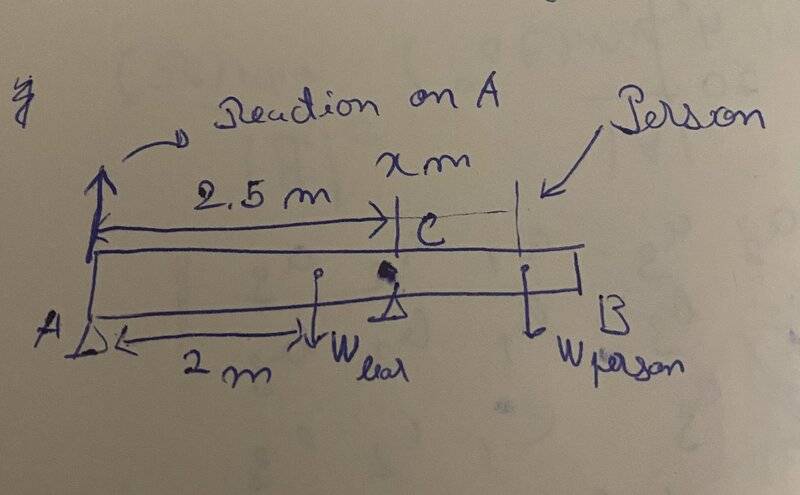 Reaction on A
Person
x m
2.5 m
C
A
B
2 m
W bar
W person